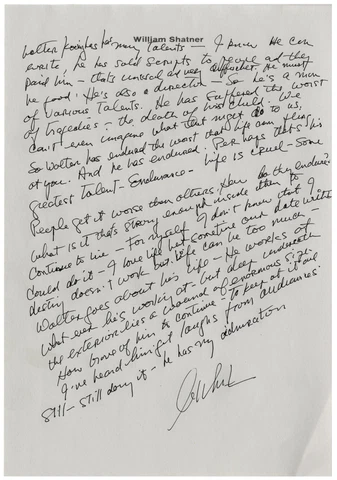 William Shatner
Walter Koenig has many talents — I know he can
write, he has sold scripts to people and they
paid him — that's unusual and very difficult. He must
be good! He's also a director — So he's a man
of various talents. He has suffered the worst
of tragedies — the death of his child. We
can't even imagine what that might do to us,
So Walter has endured the worst that life can fling
at you. And he has endured. Perhaps that's his
greatest talent — Endurance — Life is cruel — Some
People get it worse than others. How do they endure?
What is it that's strong enough inside them to
Continue to live — For myself I don't know that I
Could do it — I love life but sometime our date with
destiny doesn't work but life can be too much
Walter goes about his life — He works at
What ever he's working at — but deep underneath
the exterior lies a chasm of enormous size.
How brave of him to continue — To keep at it and
I've heard him get laughs from audiences.
Still — still doing it — He has my admiration